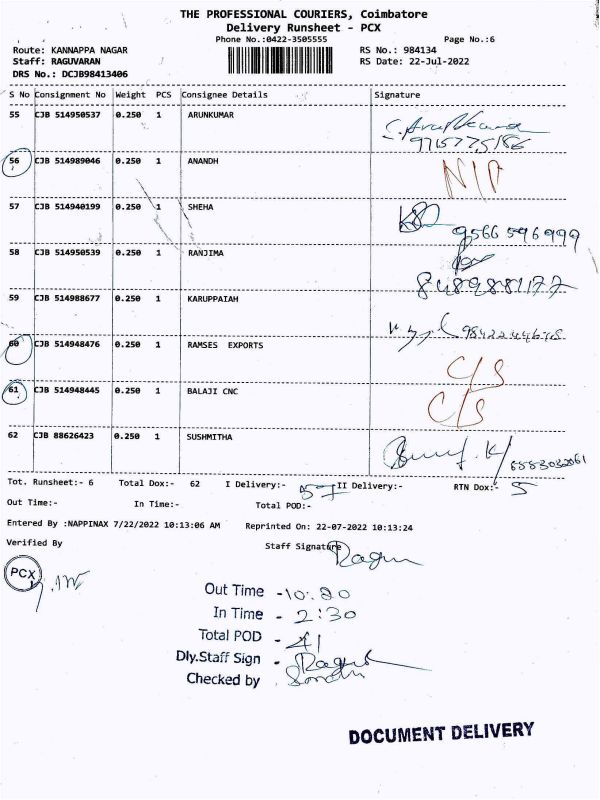 THE PROFESSIONAL COURIERS, Coimbatore
Delivery Runsheet - PCX
Phone No.:0422-3505555 Page No.:6
Route: KANNAPPA NAGAR RS No.: 984134
Staff: RAGUVARAN RS Date: 22-Jul-2022
DRS No.: DCJB98413406
S No Consignment No Weight PCS Consignee Details Signature
55 CJB 514950537 0.250 1 ARUNKUMAR
S.Arulkumar
9715775186
56 CJB 514989046 0.250 1 ANANDH N/A
57 CJB 514940199 0.250 1 SHEHA
9566596999
58 CJB 514950539 0.250 1 RANJIMA
8489881177
59 CJB 514988677 0.250 1 KARUPPAIAH
60 CJB 514948476 0.250 1 RAMSES EXPORTS C/S
61 CJB 514948445 0.250 1 BALAJI CNC C/S
62 CJB 88626423 0.250 1 SUSHMITHA
Tot. Runsheet:- 6 Total Dox:- 62 I Delivery:- 57 II Delivery:- RTN Dox:- 5
Out Time:- In Time:- Total POD:-
Entered By :NAPPINAX 7/22/2022 10:13:06 AM Reprinted On: 22-07-2022 10:13:24
Verified By Staff Signature Ragu
PCX
Out Time - 10:20
In Time - 2:30
Total POD - 41
Dly.Staff Sign - Ragu
Checked by
DOCUMENT DELIVERY